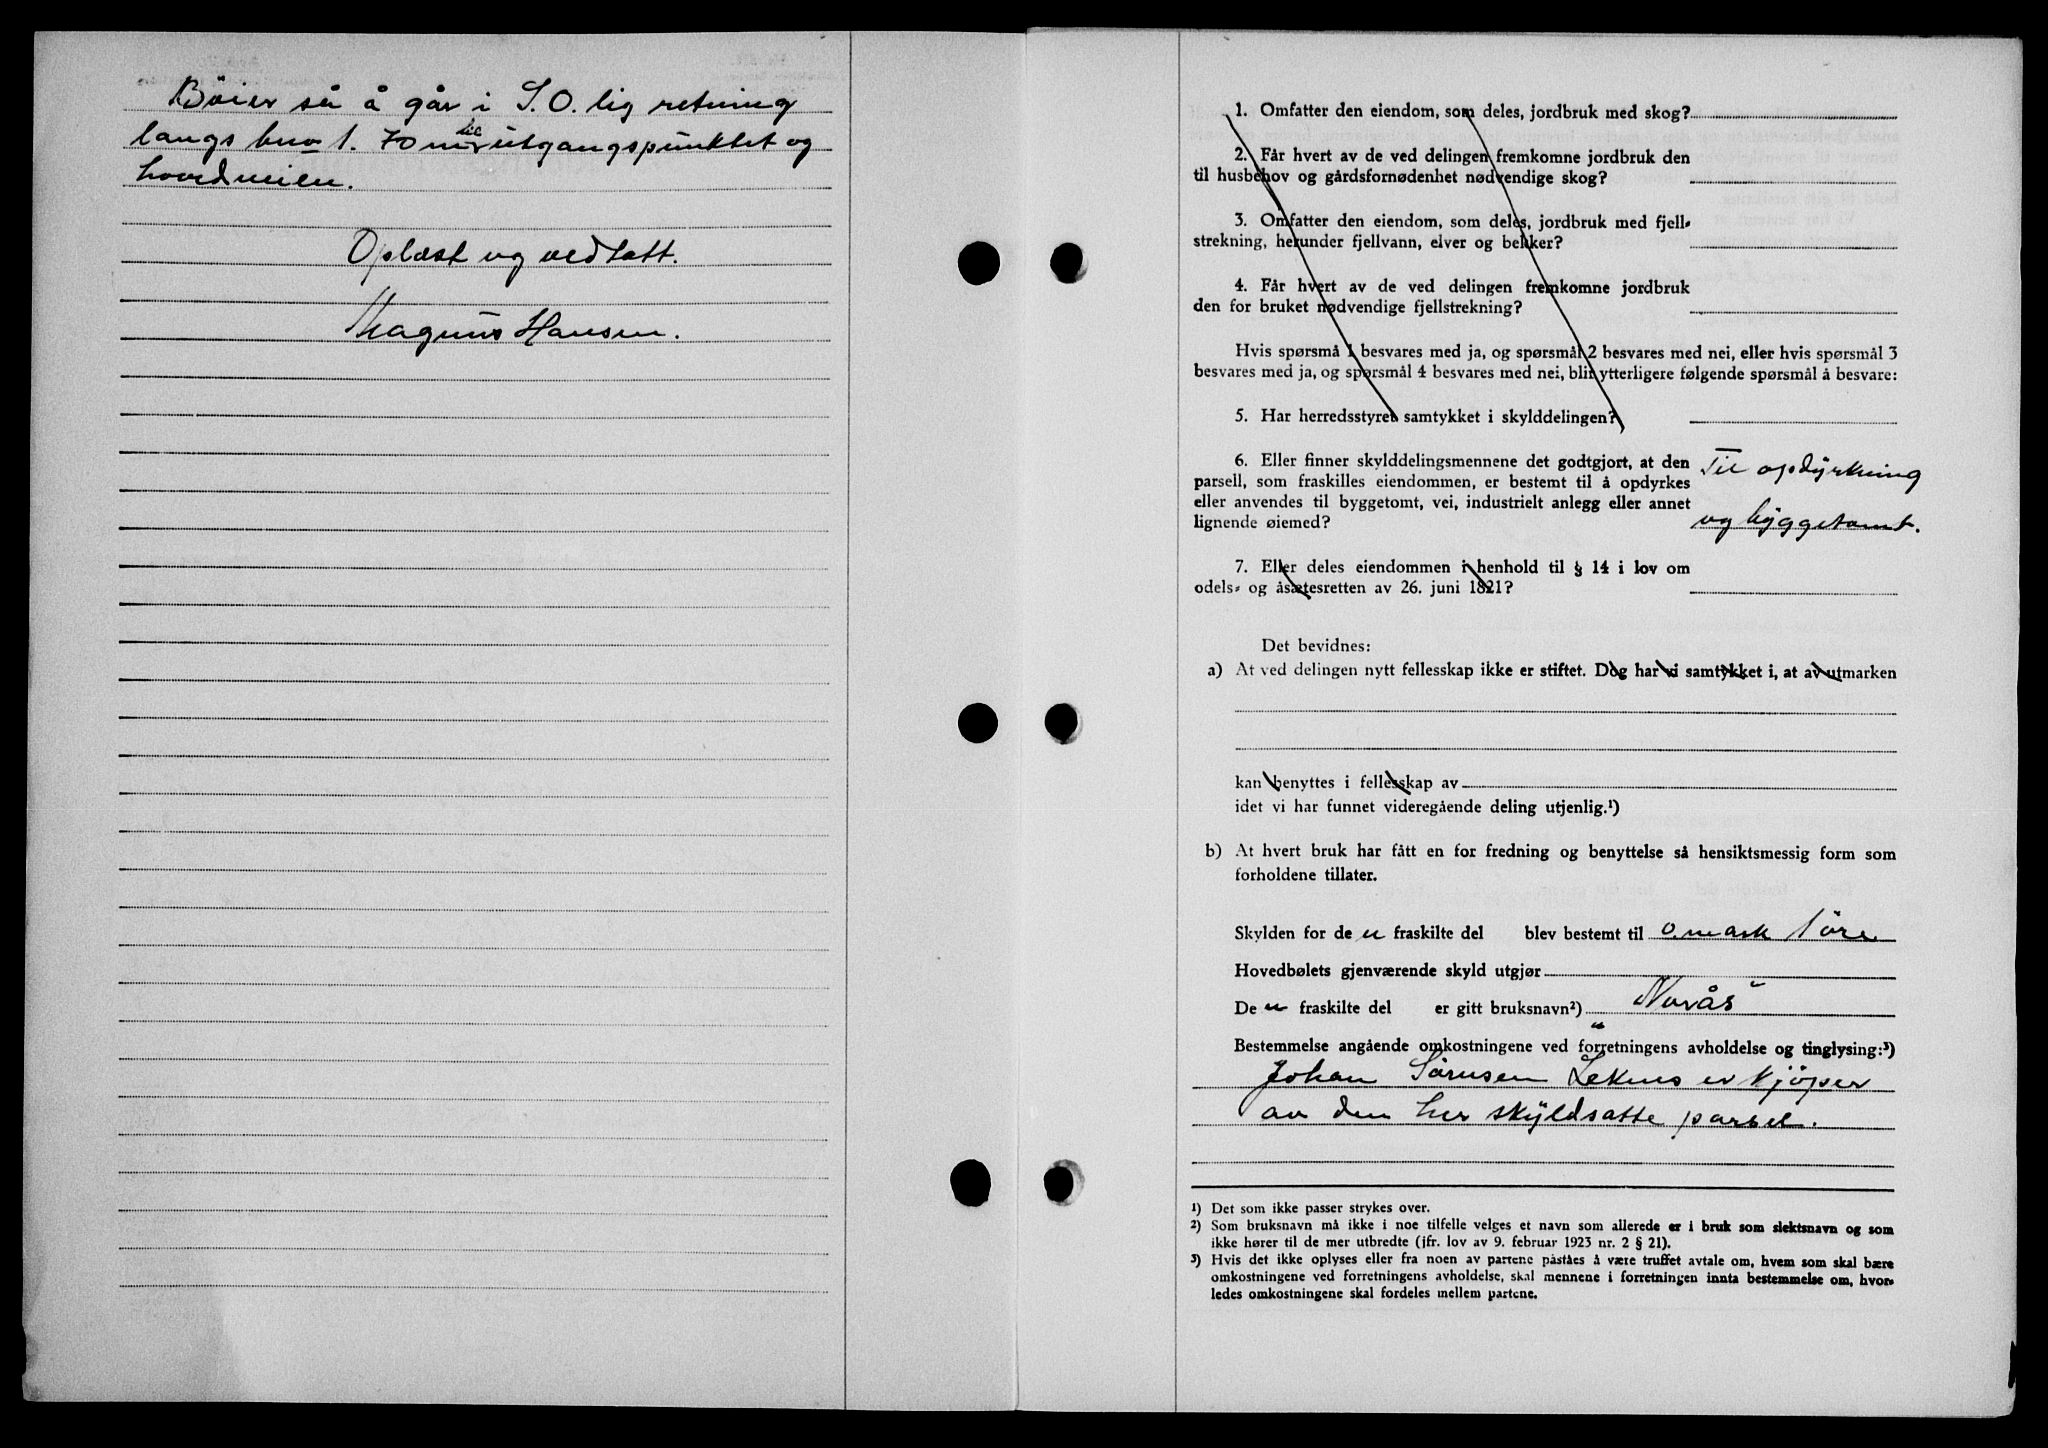 Bøier så å går i S.O. lig retning
langs bno 1. 70 m til utgangspunktet og
hovedveien.
Oplæst og vedtatt.
Magnus Hansen.
1. Omfatter den eiendom, som deles, jordbruk med skog?
2. Får hvert av de ved delingen fremkomne jordbruk den
til husbehov og gårdsfornødenhet nødvendige skog?
3. Omfatter den eiendom, som deles, jordbruk med fjell-
strekning, herunder fjellvann, elver og bekker?
4. Får hvert av de ved delingen fremkomne jordbruk
den for bruket nødvendige fjellstrekning?
Hvis spørsmå 1 besvares med ja, og spørsmål 2 besvares med nei, eller hvis spørsmål 3
besvares med ja, og spørsmål 4 besvares med nei, blir ytterligere følgende spørsmål å besvare:
5. Har herredsstyret samtykket i skylddelingen?
6. Eller finner skylddelingsmennene det godtgjort, at den
parsell, som fraskilles eiendommen, er bestemt til å opdyrkes
eller anvendes til byggetomt, vei, industrielt anlegg eller annet
lignende øiemed?
Til opdyrkning
og byggetomt.
7. Eller deles eiendommen i henhold til § 14 i lov om
odels- og åsætesretten av 26. juni 1821?
Det bevidnes:
a) At ved delingen nytt fellesskap ikke er stiftet. Dog har vi samtykket i, at av utmarken
kan benyttes i fellesskap av
idet vi har funnet videregående deling utjenlig.¹)
b) At hvert bruk har fått en for fredning og benyttelse så hensiktsmessig form som
forholdene tillater.
Skylden for de n fraskilte del blev bestemt til 0 mark 1 øre
Hovedbølets gjenværende skyld utgjør
De n fraskilte del er gitt bruksnavn²) „Norås"
Bestemmelse angående omkostningene ved forretningens avholdelse og tinglysing:³)
Johan Sørnsen Leknes er kjøper
av den her skyldsatte parsel.
¹) Det som ikke passer strykes over.
²) Som bruksnavn må ikke i noe tilfelle velges et navn som allerede er i bruk som slektsnavn og som
ikke hører til de mer utbredte (jfr. lov av 9. februar 1923 nr. 2 § 21).
³) Hvis det ikke oplyses eller fra noen av partene påståes å være truffet avtale om, hvem som skal bære
omkostningene ved forretningens avholdelse, skal mennene i forretningen innta bestemmelse om, hvor-
ledes omkostningene skal fordeles mellem partene.